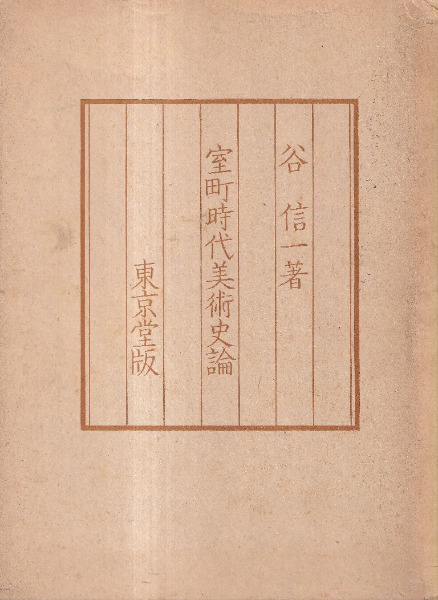 谷 信一著
室町時代美術史論
東京堂版